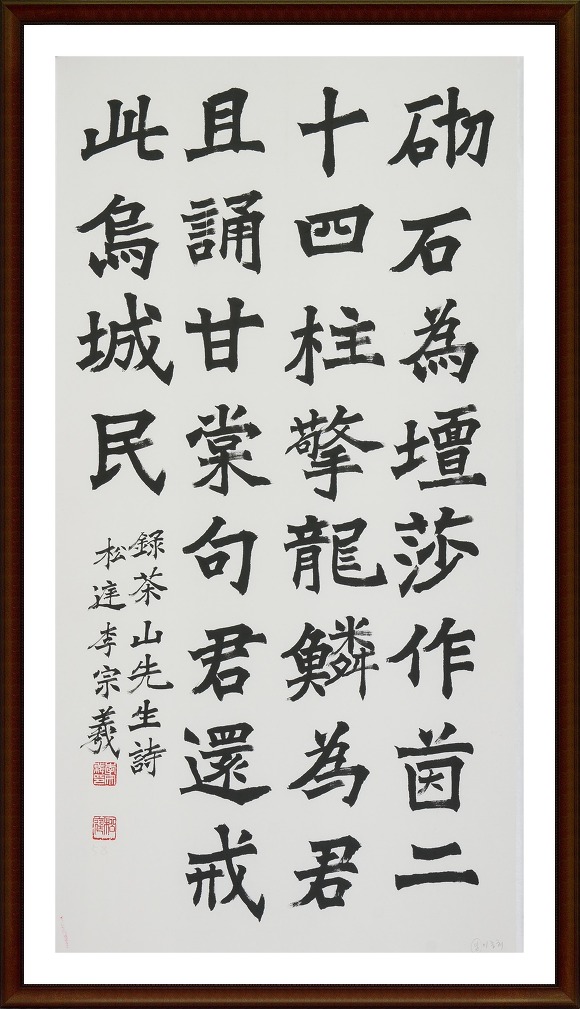 砌石為壇莎作茵二
十四柱擎龍鱗為君
且誦甘棠句君還戒
此烏城民
錄茶山先生詩
松李宗羲